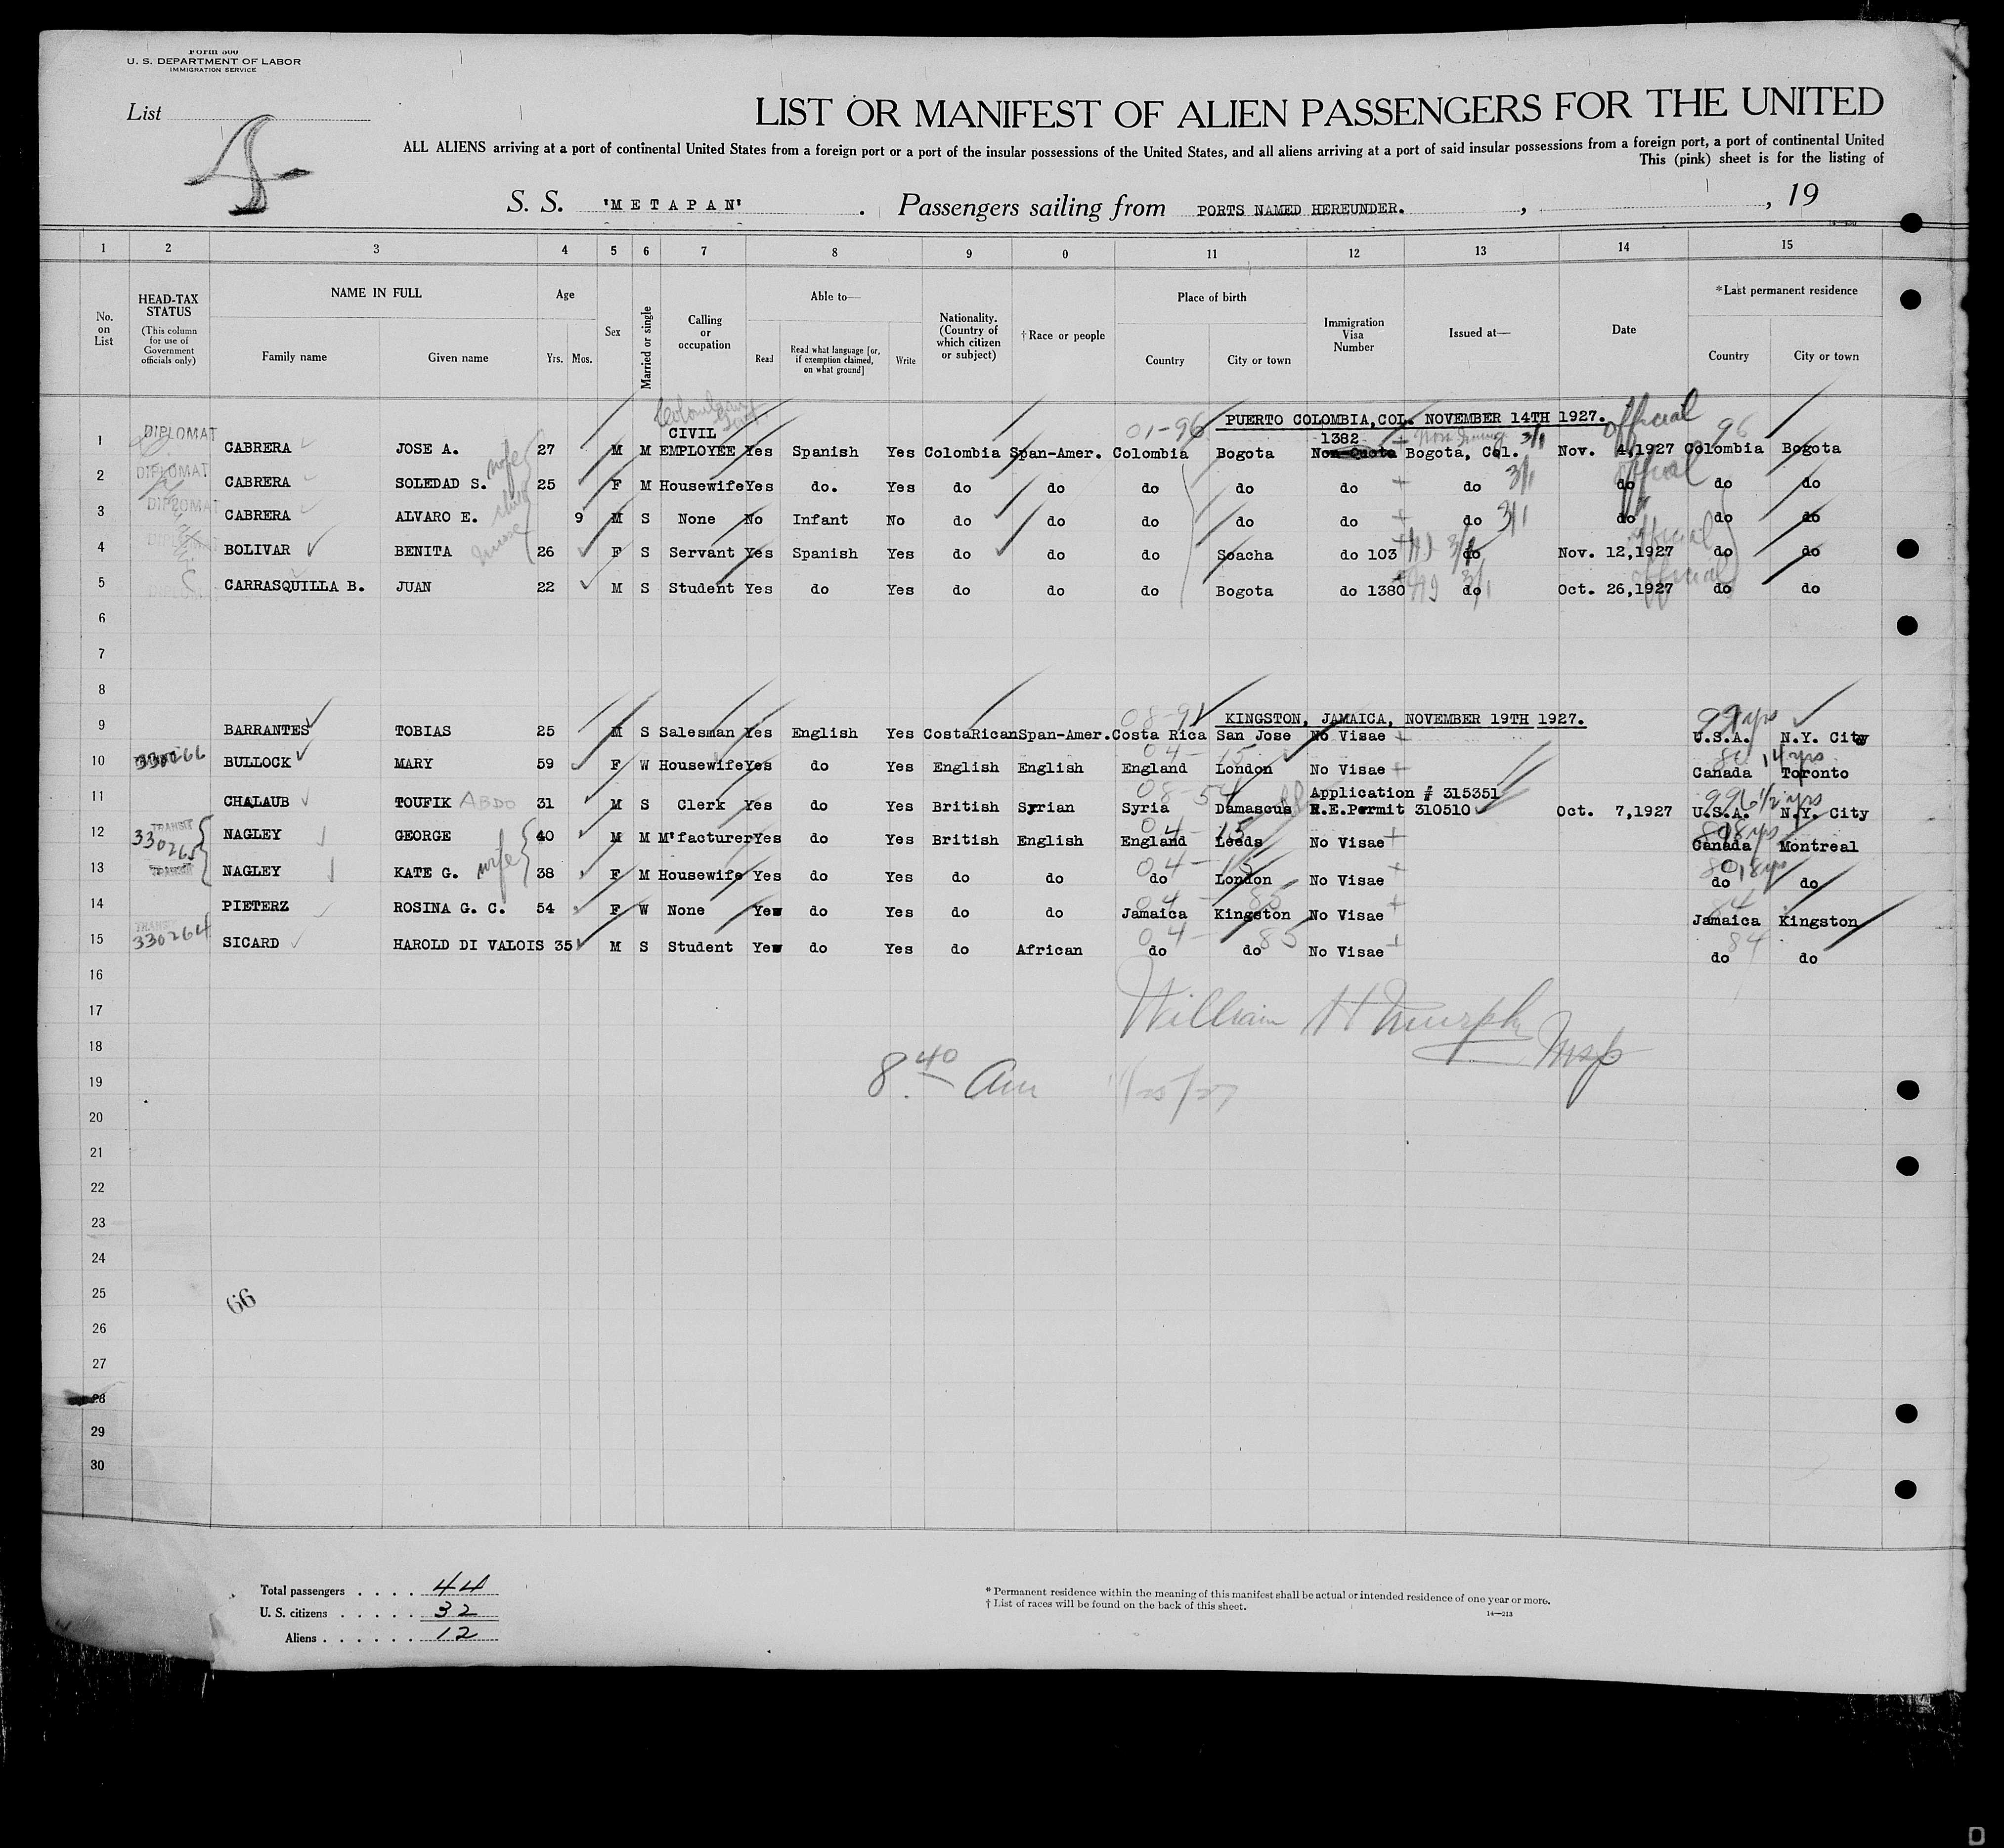 Form 500
U. S. DEPARTMENT OF LABOR
IMMIGRATION SERVICE
List
4
LIST OR MANIFEST OF ALIEN PASSENGERS FOR THE UNITED
ALL ALIENS arriving at a port of continental United States from a foreign port or a port of the insular possessions of the United States, and all aliens arriving at a port of said insular possessions from a foreign port, a port of continental United
This (pink) sheet is for the listing of
S. S. 'METAPAN' . Passengers sailing from PORTS NAMED HEREUNDER. , , 19
1 2 3 4 5 6 7 8 9 0 11 12 13 14 15
No. on List
HEAD-TAX STATUS (This column for use of Government officials only)
NAME IN FULL Family name Given name
Age Yrs. Mos.
Sex
Married or single
Calling or occupation
Able to— Read Read what language [or, if exemption claimed, on what ground] Write
Nationality. (Country of which citizen or subject)
†Race or people
Place of birth Country City or town
Immigration Visa Number
Issued at—
Date
*Last permanent residence Country City or town
PUERTO COLOMBIA,COL. NOVEMBER 14TH 1927.
1 DIPLOMAT CABRERA JOSE A. 27 M M CIVIL EMPLOYEE Yes Spanish Yes Colombia Span-Amer. 01-96 Colombia Bogota 1382 Non-Quota Bogota, Col. 3/1 Nov. 4,1927 official 96 Colombia Bogota
2 DIPLOMAT CABRERA SOLEDAD S. wife 25 F M Housewife Yes do. Yes do do do do do do 3/1 do official do do
3 DIPLOMAT CABRERA ALVARO E. child 9 M S None No Infant No do do do do do do 3/1 do do do
4 BOLIVAR BENITA nurse 26 F S Servant Yes Spanish Yes do do do Soacha do 103 do 3/1 Nov. 12,1927 official do do
5 DIPLOM CARRASQUILLA B. JUAN 22 M S Student Yes do Yes do do do Bogota do 1380 do 3/1 Oct. 26,1927 official do do
6
7
8
KINGSTON, JAMAICA, NOVEMBER 19TH 1927.
9 BARRANTES TOBIAS 25 M S Salesman Yes English Yes CostaRican Span-Amer. 08-91 Costa Rica San Jose No Visae 99 U.S.A. N.Y. City
10 330266 BULLOCK MARY 59 F W Housewife Yes do Yes English English 04-15 England London No Visae 80 14 yrs Canada Toronto
11 CHALAUB TOUFIK ABDO 31 M S Clerk Yes do Yes British Syrian 08-54 Syria Damascus Application # 315351 R.E.Permit 310510 Oct. 7,1927 99 6 1/2 yrs U.S.A. N.Y. City
12 TRANSIT 330265 NAGLEY GEORGE 40 M M M'facturer Yes do Yes British English 04-15 England Leeds No Visae Canada Montreal
13 NAGLEY KATE G. wife 38 F M Housewife Yes do Yes do do 04-15 do London No Visae do do
14 PIETERZ ROSINA G. C. 54 F W None Yes do Yes do do 04-85 Jamaica Kingston No Visae 84 Jamaica Kingston
15 TRANSIT 330264 SICARD HAROLD DI VALOIS 35 M S Student Yes do Yes do African 04-85 do do No Visae 84 do do
16
17 William H Murphy
18
19 8.40 Am 11/25/27
20
21
22
23
24
25
66
26
27
28
29
30
Total passengers . . . . 44
U. S. citizens . . . . . 32
Aliens . . . . . . 12
* Permanent residence within the meaning of this manifest shall be actual or intended residence of one year or more.
† List of races will be found on the back of this sheet.
14—213